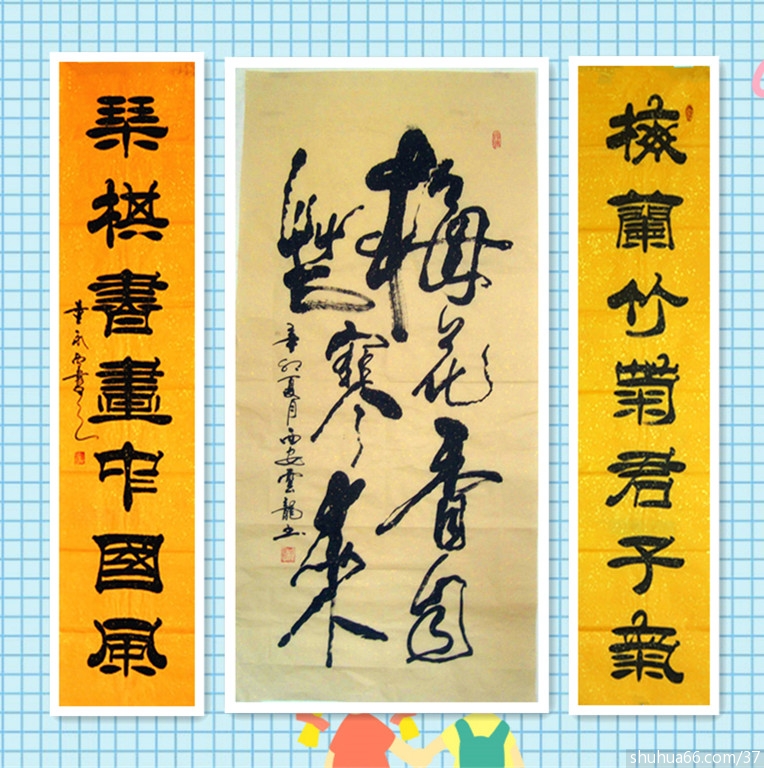 梅蘭竹菊君子氣
梅花香自
苦寒来
辛卯夏月西安雲龍书
琴棋書畫中國風
shuhua66.com/37